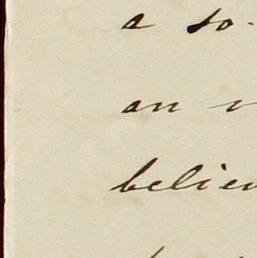 a so-
an
belie